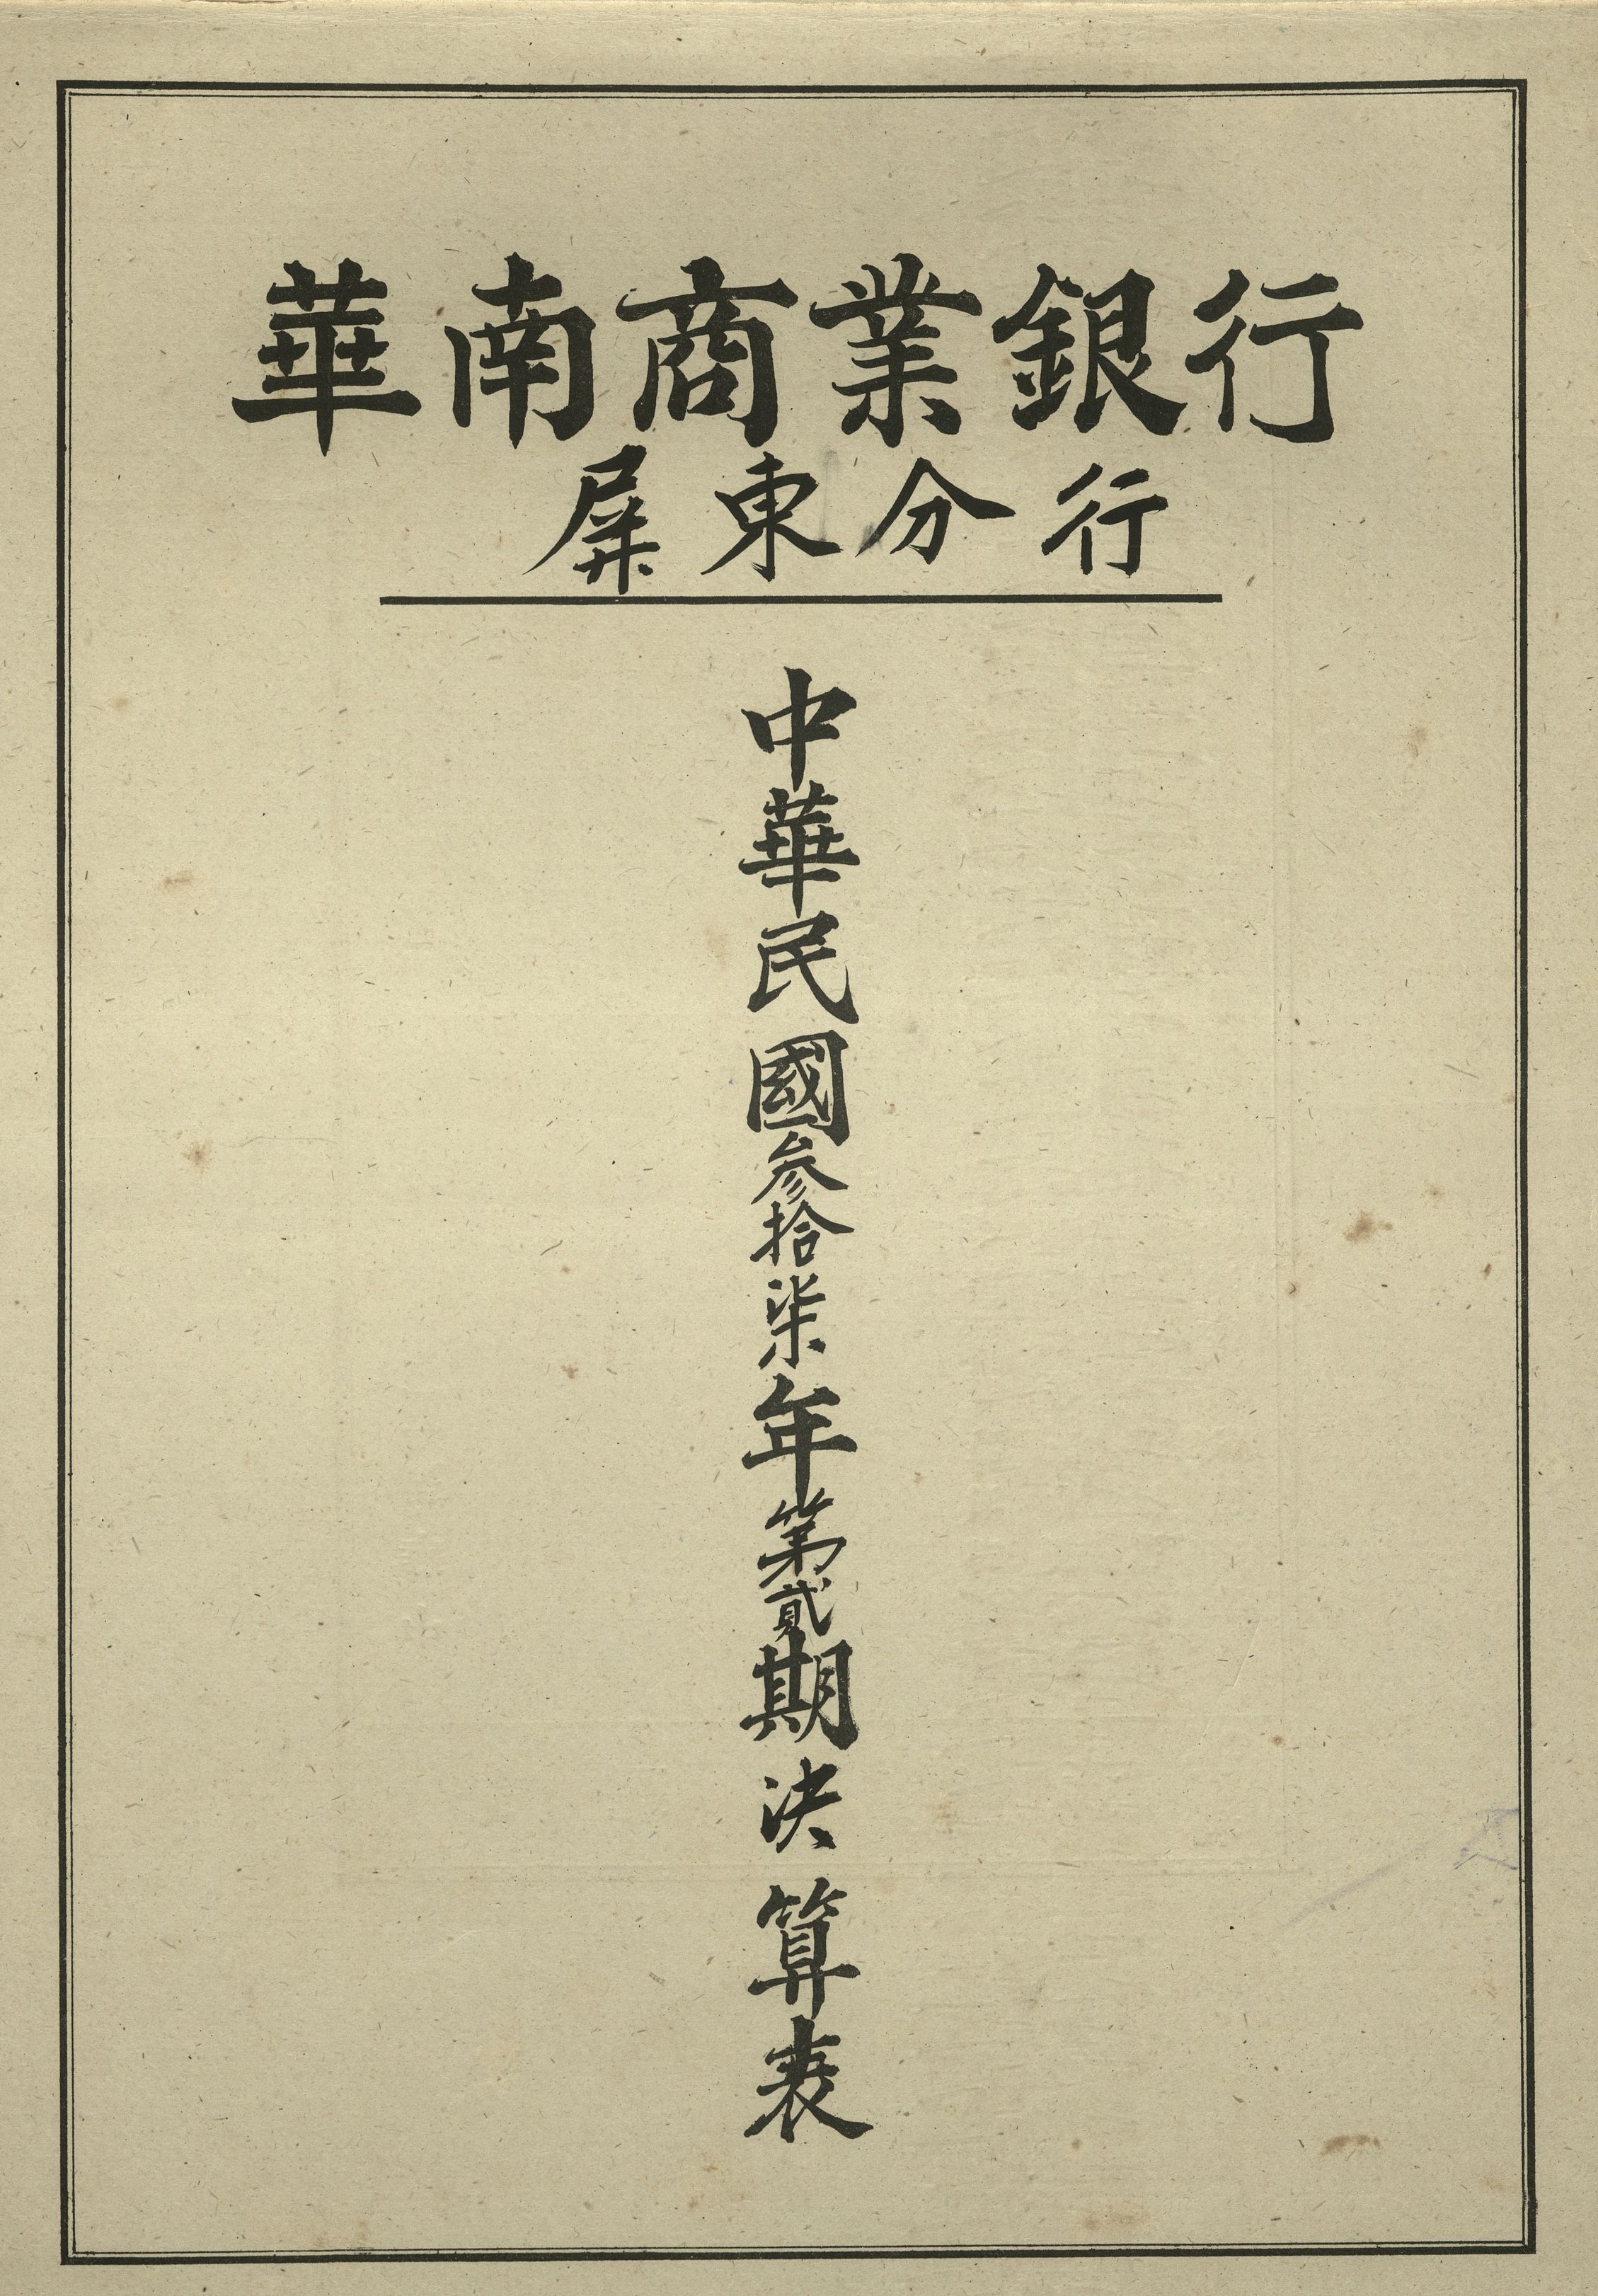 華南商業銀行
屏東分行
中華民國参拾柒年第貳期決算表